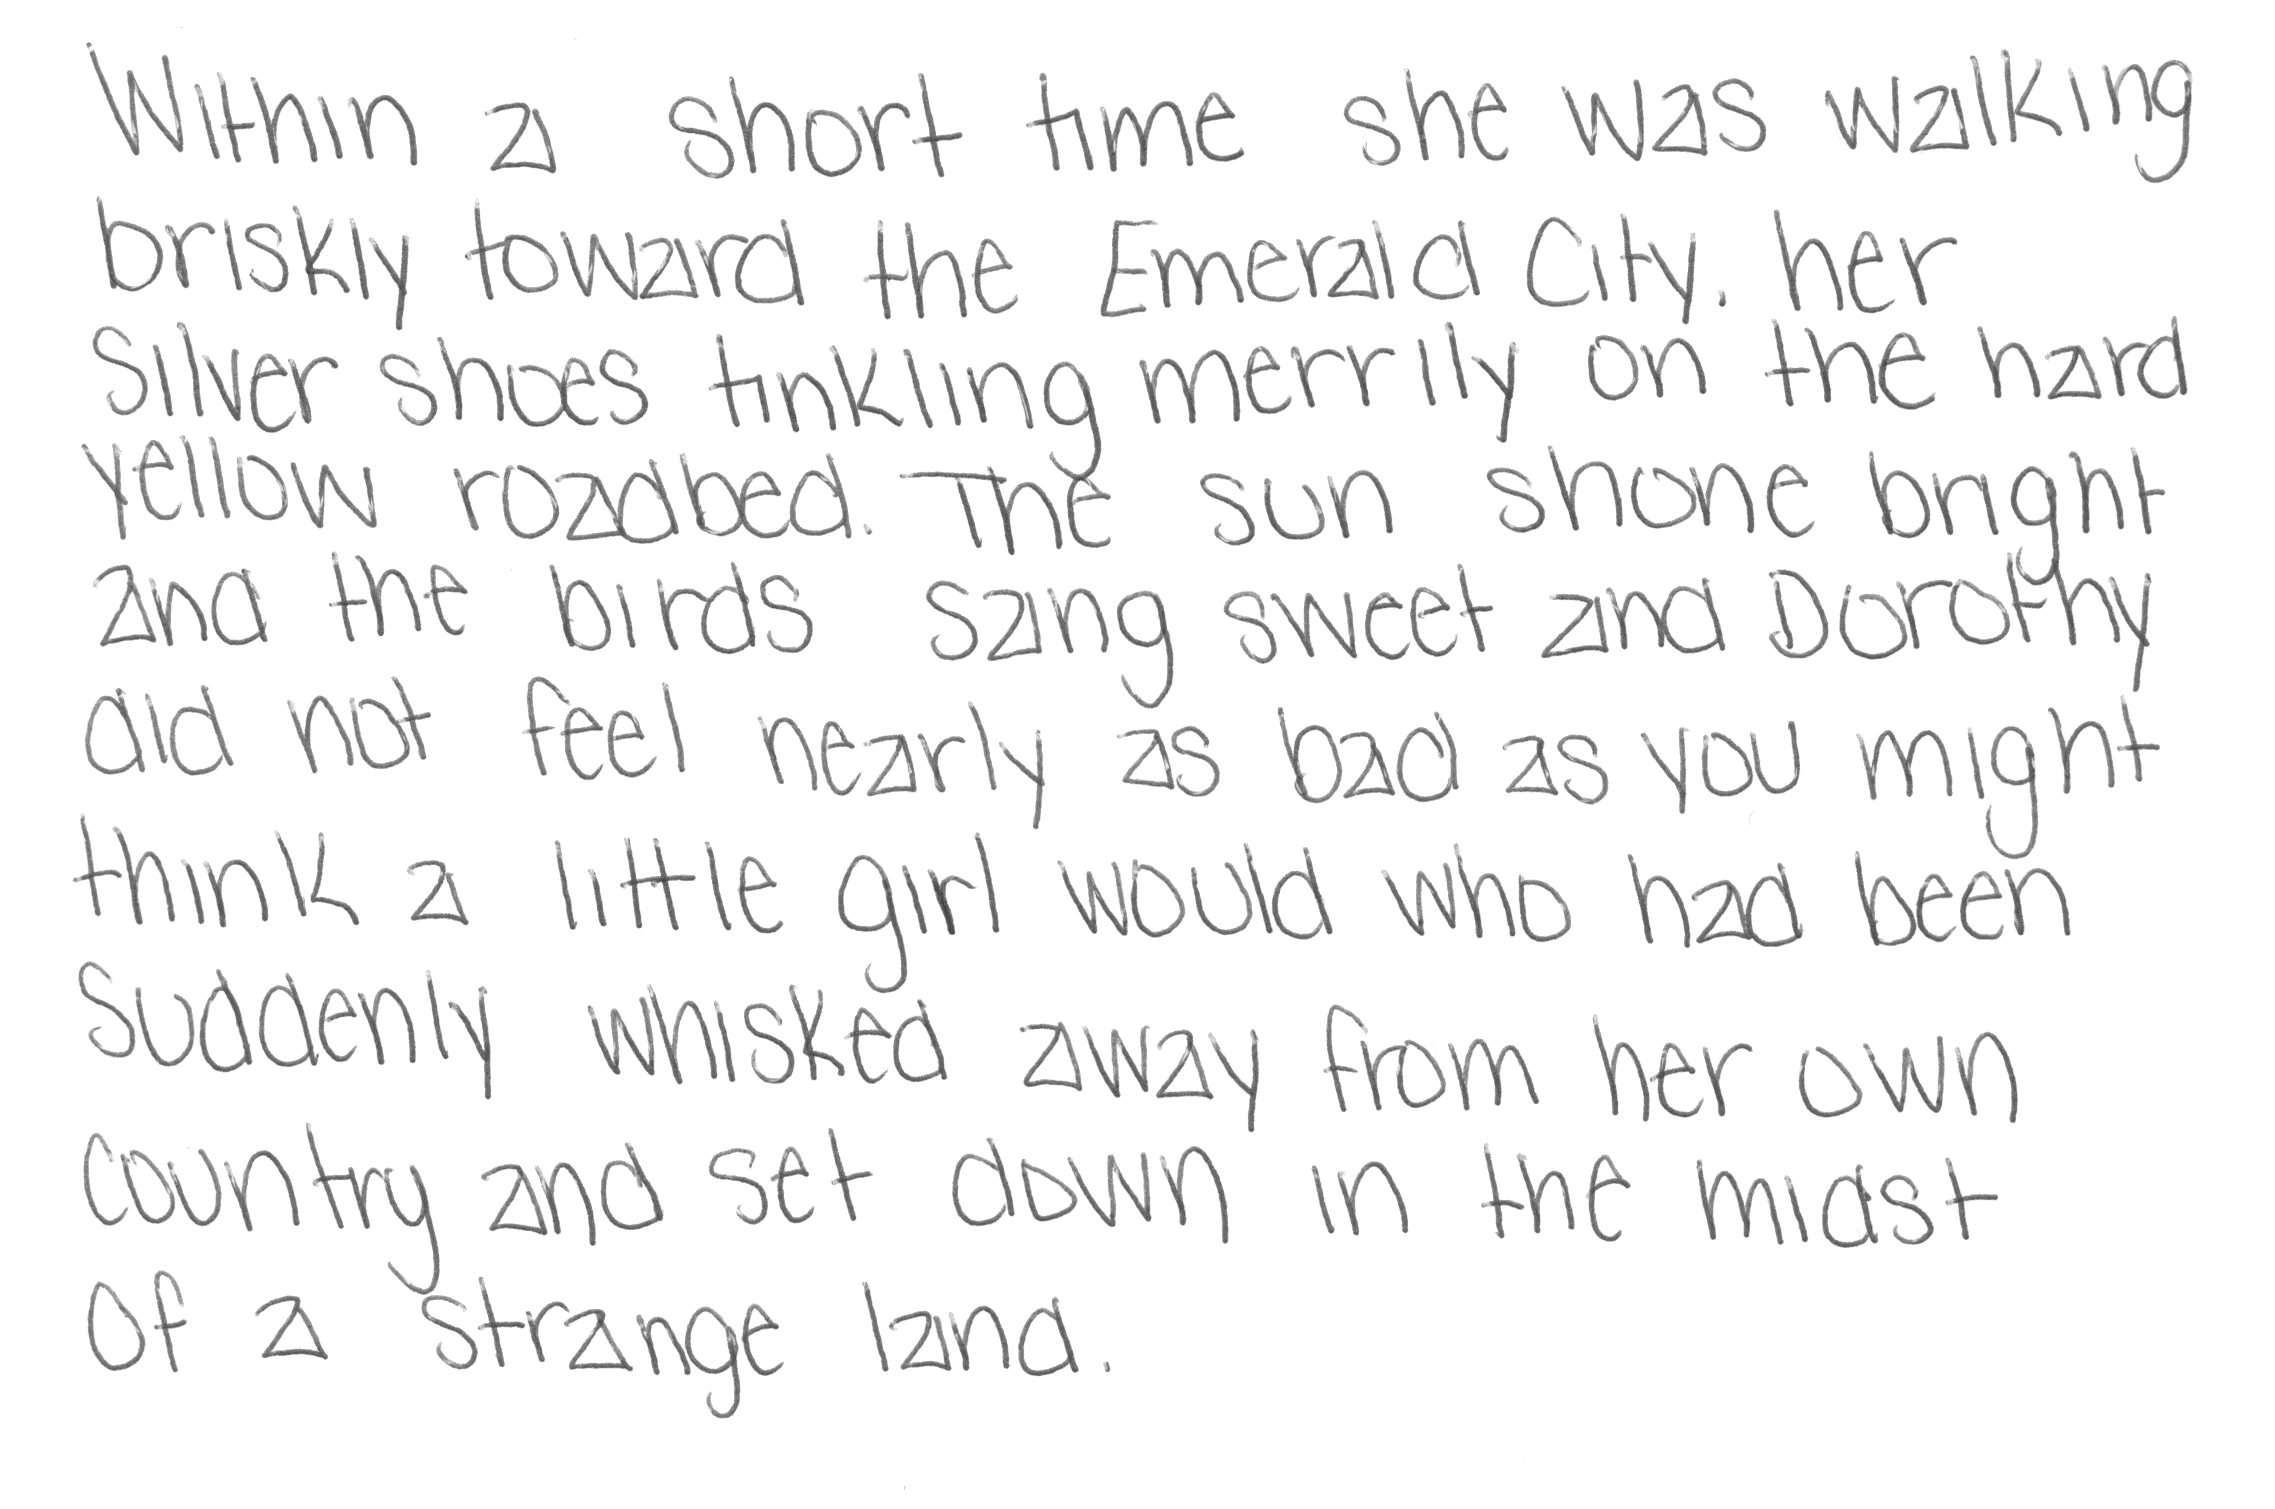 Within a short time she was walking
briskly toward the Emerald City. her
Silver shoes tinkling merrily on the hard
yellow roadbed. The sun shone bright
and the birds sang sweet and Dorothy
did not feel nearly as bad as you might
think a little girl would who had been
suddenly whisked away from her own
country and set down in the midst
of a strange land.